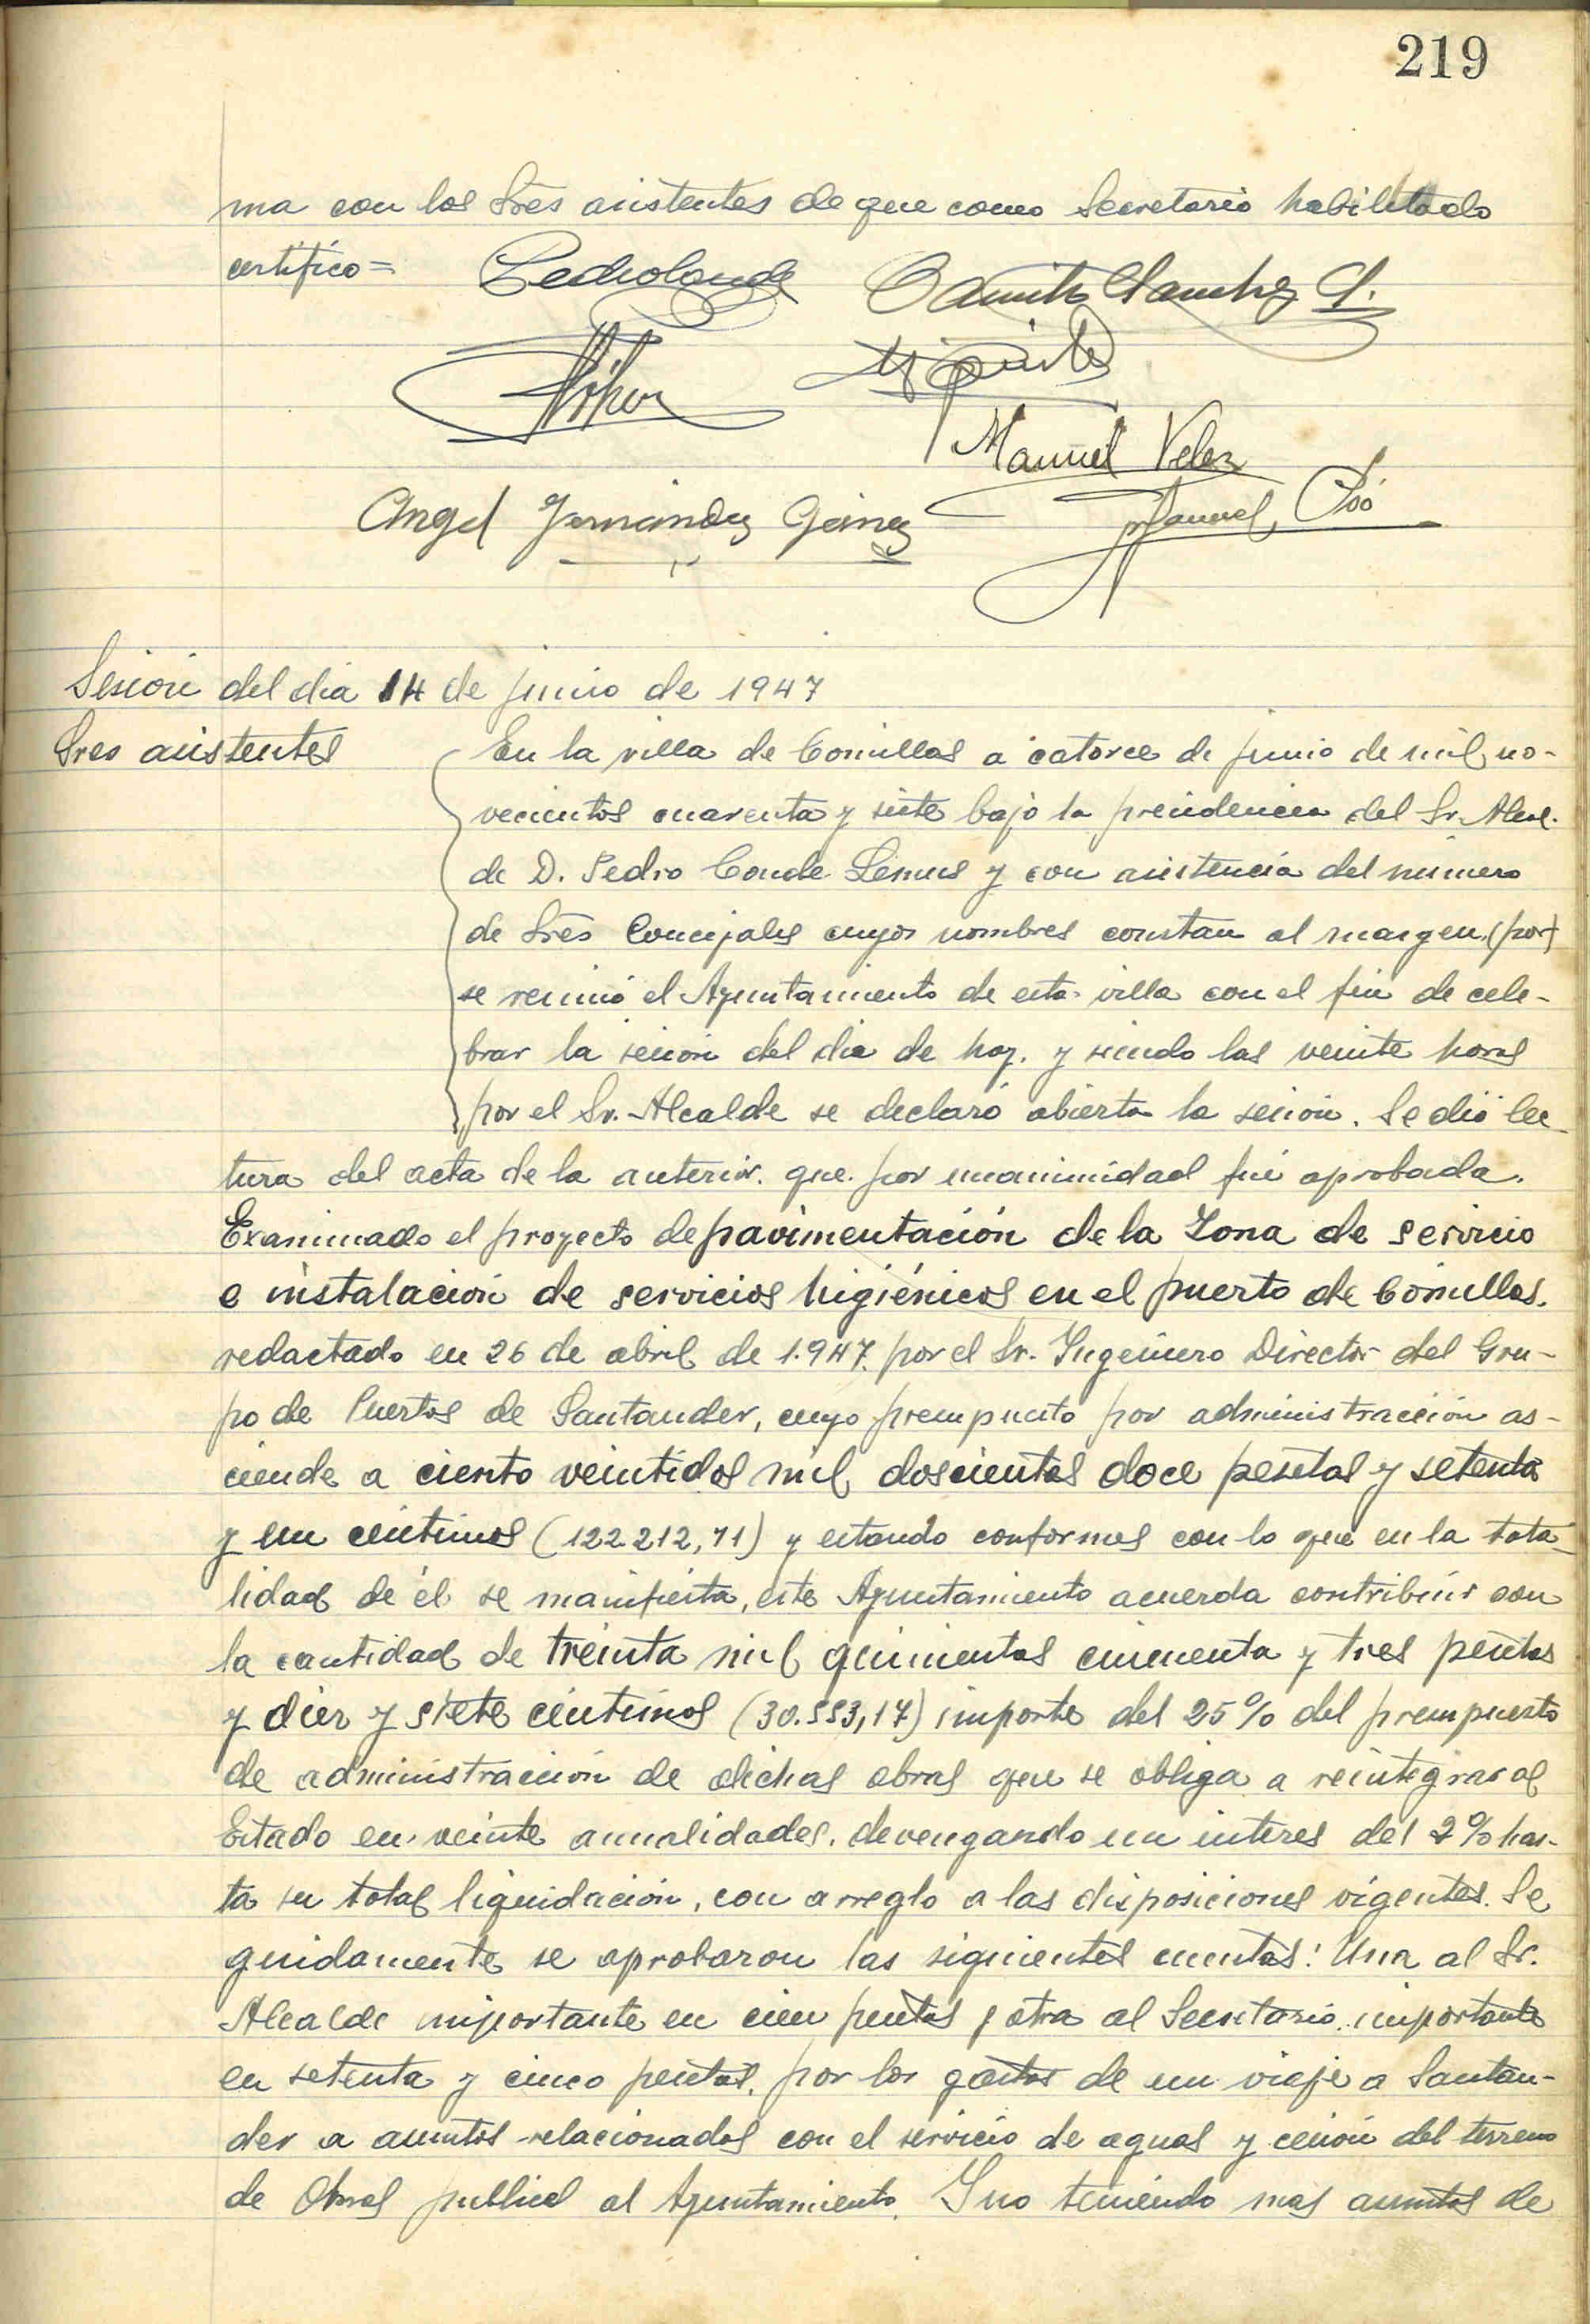 219
ma con los Sres asistentes de que como Secretario habilitado
certifico=
Pedro Conde Camilo Sanchez
Manuel Velez
Angel Fernández Gómez Manuel
Sesion del dia 14 de junio de 1947
Sres asistentes
En la villa de Comillas a catorce de junio de mil no-
vecientos cuarenta y siete bajo la presidencia del Sr. Alcal-
de D. Pedro Conde Lemus y con asistencia del número
de Sres Concejales cuyos nombres constan al margen, (por)
se reunió el Ayuntamiento de esta villa con el fin de cele-
brar la sesion del dia de hoy. y siendo las veinte horas
por el Sr. Alcalde se declaró abierta la sesion. Se dió lec-
tura del acta de la anterior. que por unanimidad fué aprobada.
Examinado el proyecto de pavimentación de la Zona de servicio
e instalacion de servicios higiénicos en el puerto de Comillas.
redactado en 26 de abril de 1.947. por el Sr. Ingeniero Director del Gru-
po de Puertos de Santander, cuyo presupuesto por administracción as-
ciende a ciento veintidos mil doscientas doce pesetas y setenta
y un céntimos (122.212,71) y estando conformes con lo que en la tota-
lidad de él se manifiesta, este Ayuntamiento acuerda contribuir con
la cantidad de treinta mil quinientas cincuenta y tres pesetas
y diez y siete céntimos (30.553,17) importe del 25% del presupuesto
de administracción de dichas obras que se obliga a reintegrar al
Estado en veinte anualidades. devengando un interes del 2% has-
ta su total liquidación, con arreglo a las disposiciones vigentes. Se
guidamente se aprobaron las siguientes cuentas: Una al Sr.
Alcalde importante en cien pesetas y otra al Secretario. importante
en setenta y cinco pesetas. por los gastos de un viaje a Santan-
der a asuntos relacionados con el servicio de aguas y cesión del terreno
de Obras publicas al Ayuntamiento. Y no teniendo mas asuntos de